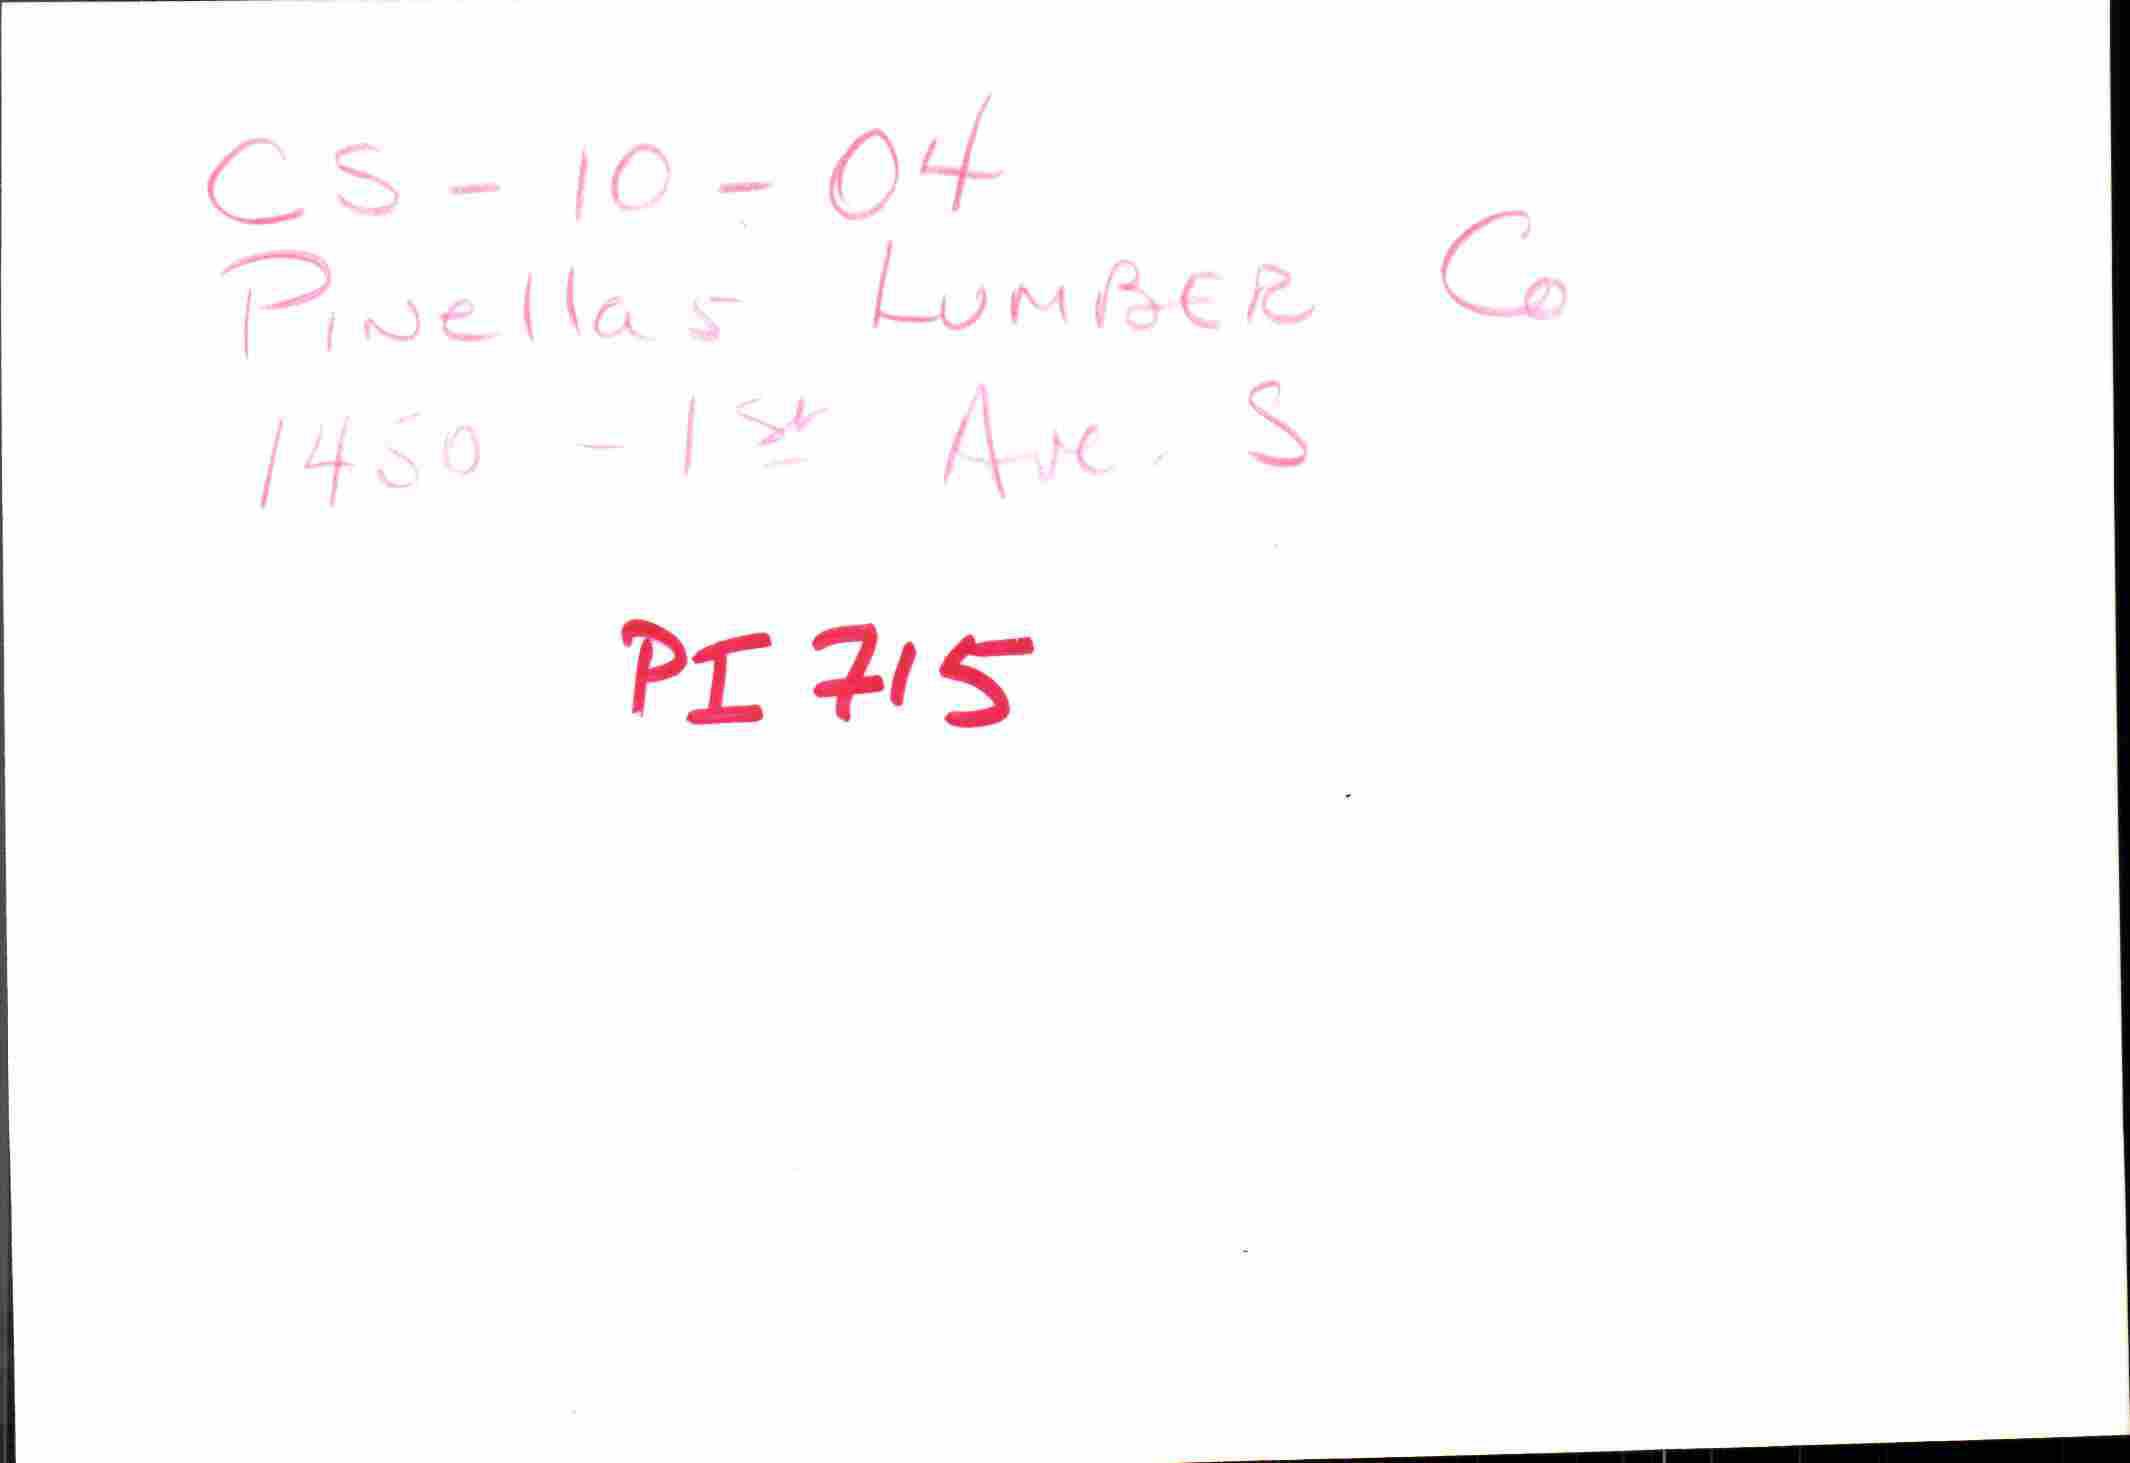 CS-10-04
Pinellas LUMBER Co
1450 - 1st Ave. S
PI 715